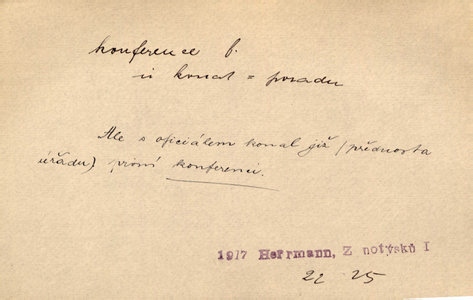 konference f.
konat = poradu
Ale s oficiálem konal již (přednosta
úřadu) první konferenci.
1917 Herrmann, Z notýsků I
22 25